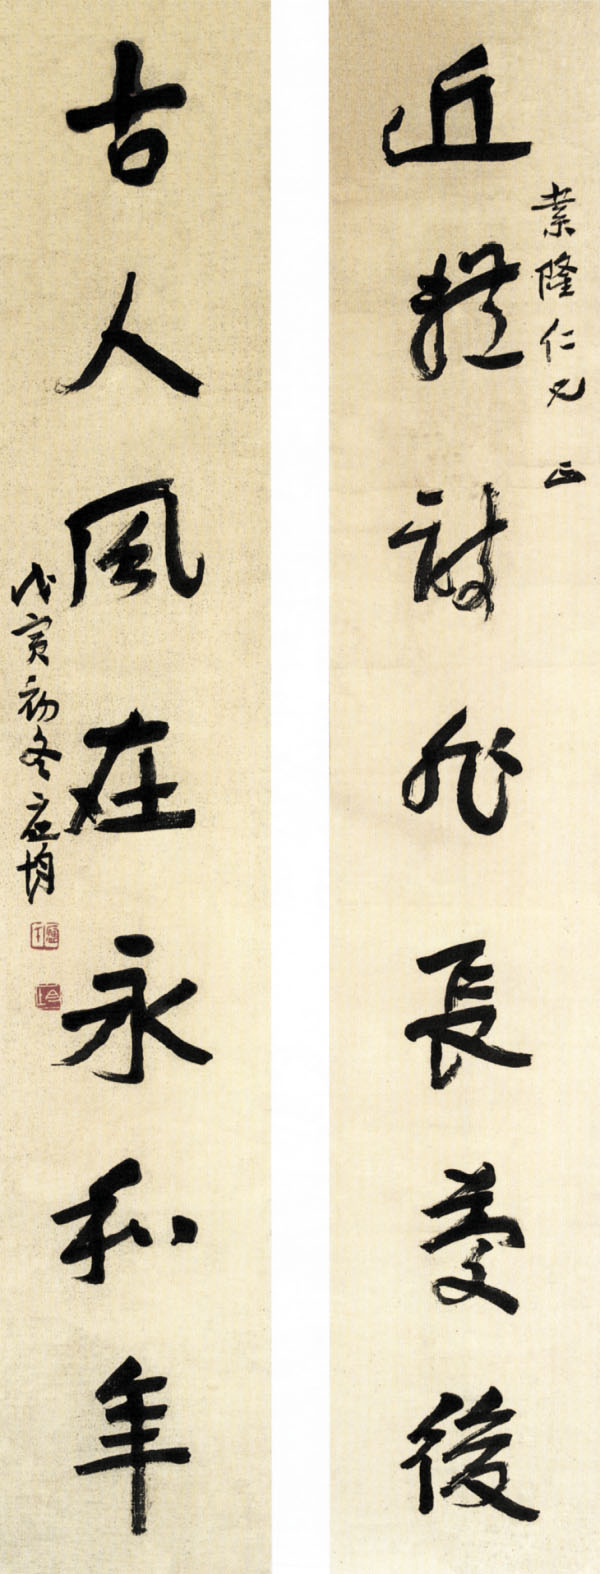 隆仁兄 正
近體詩非長慶後
古人風在永和年
戊寅初冬應均